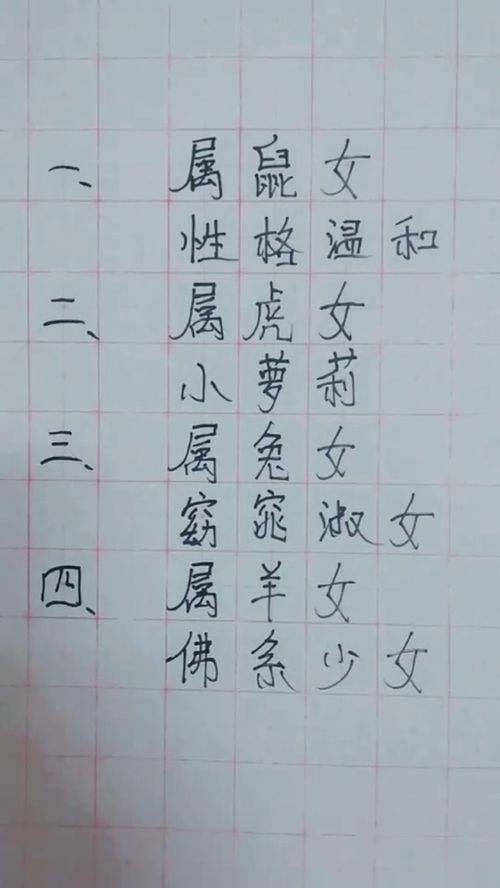 一、 属鼠女
性格温和
二、 属虎女
小萝莉
三、 属兔女
窈窕淑女
四、 属羊女
佛系少女